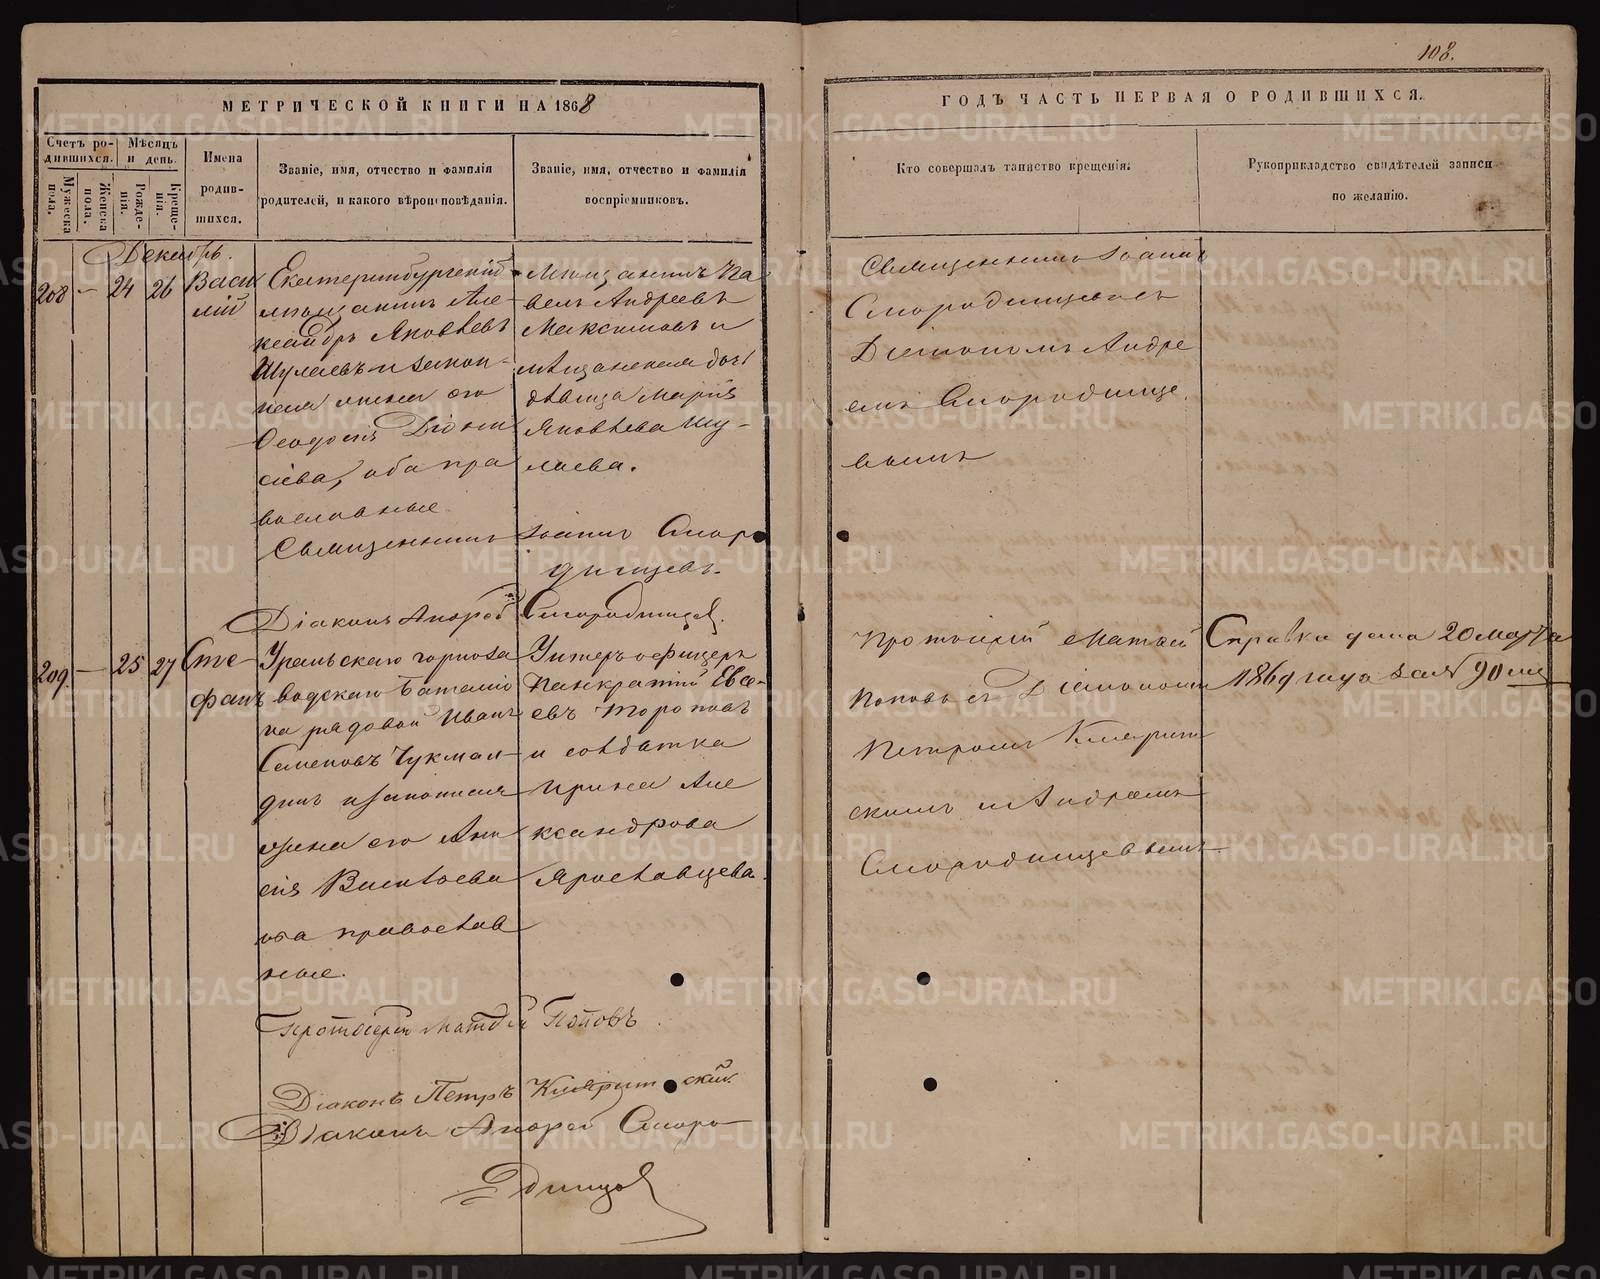 108.
МЕТРИЧЕСКОЙ КНИГИ НА 1868
ГОДЪ ЧАСТЬ ПЕРВАЯ О РОДИВШИХСЯ.
Счетъ ро-
дившихся.
Мѣсяцъ
и день.
Мужеска
пола.
Женска
пола.
Рожде-
нія.
Креще-
нія.
Имена
родив-
шихся.
Званіе, имя, отчество и фамилія
родителей, и какого вѣроисповѣданія.
Званіе, имя, отчество и фамилія
воспріемниковъ.
Кто совершалъ таинство крещенія.
Рукоприкладство свидѣтелей записи
по желанію.
Декабрь.
208 — 24 26
Васи
лій
Екатеринбургскій
мѣщанинъ Але-
ксандръ Яковлевъ
Шулаевъ и закон-
ная жена его
Ѳеодосія Діони
сіева, оба пра
вославные
Мѣщанинъ Па
велъ Андреевъ
Максимовъ и
мѣщанская дочь
дѣвица Марія
Яковлева Шу-
лаева.
Священникъ Іоаннъ Смор
динцевъ.
Діаконъ Андрей Смородинцев.
Священникъ Іоаннъ
Смородинцевъ съ
Діакономъ Андре
емъ Смородинце
вымъ
209. — 25 27
Сте-
фанъ
Уральскаго горноза
водскаго баталіо
на рядовой Иванъ
Семеновъ Чукман-
динъ и законная
жена его Ани
сія Васильева
оба православ
ные.
Унтеръ офицеръ
Панкратій Евсе-
евъ Тороповъ
и солдатка
Ирина Але
ксандрова
Ярославцева.
Протоіерей Матѳей
Поповъ съ Діакономъ
Петромъ
скимъ и Андреемъ
Смородинцевымъ
Справка дана 20 марта
1869 года за № 90 мъ
Протоіерей Матѳей Поповъ.
Діаконъ Петръ
Діаконъ Андрей Сморо-
динцев
METRIKI.GASO-URAL.RU